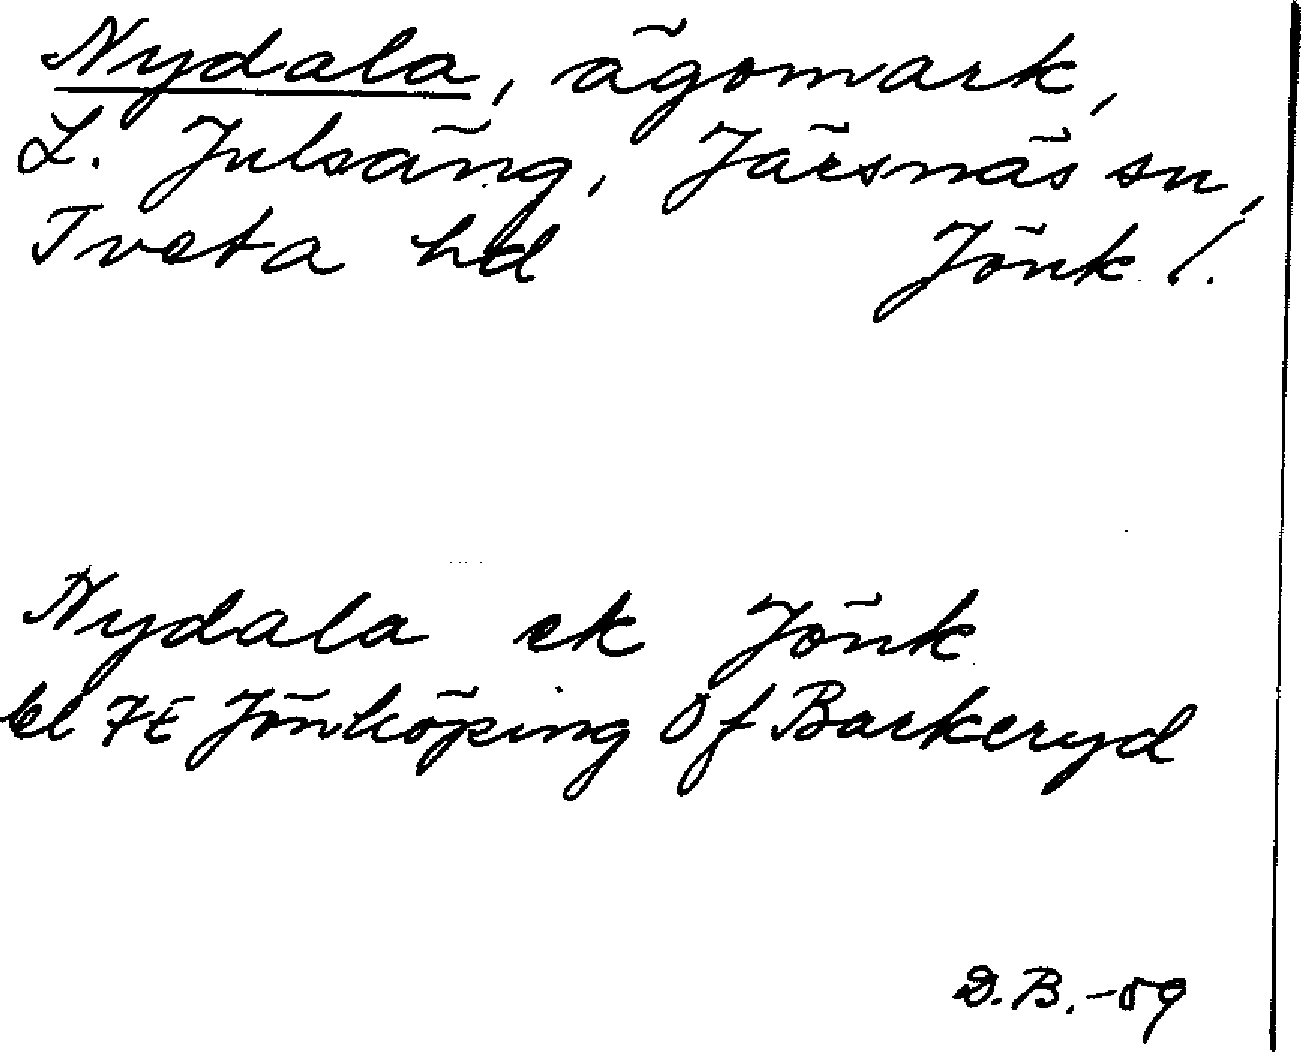 Nydala, ägomark,
L. Julsäng, Järsnäs sn,
Tveta hd Jönk l.
Nydala ek Jönk
bl 7E Jönköping Of Barkeryd
D.B. -59